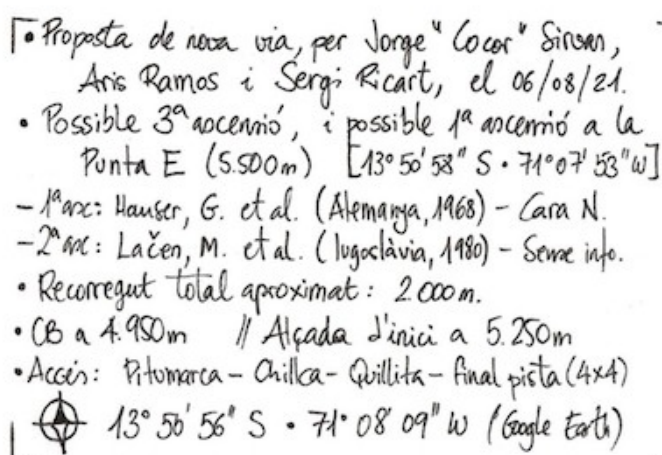 • Proposta de nova via, per Jorge "Cocor" Sirvan,
Aris Ramos i Sergi Ricart, el 06/08/21.
• Possible 3ª ascensió, i possible 1ª ascensió a la
Punta E (5.500m) [13° 50' 58" S • 71° 07' 53" W]
- 1ª asc: Hauser, G. et al. (Alemanya, 1968) - Cara N.
- 2ª asc: Lačen, M. et al. (Iugoslàvia, 1980) - Sense info.
• Recorregut total aproximat: 2.000m.
• CB a 4.950m // Alçada d'inici a 5.250m
• Accés: Pitumarca - Chillca - Quillita - final pista (4x4)
13° 50' 56" S • 71° 08' 09" W (Google Earth)